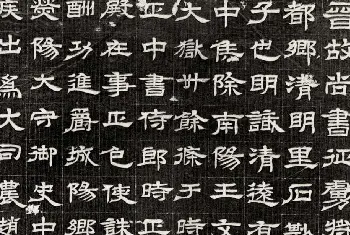 晉故尚書征虜將
都鄉清明里石尠
子也明識清遠有
中侯除南陽王文
大獄卅餘條于時
正中書侍郎時正
殿在事正色使誅
酬功進爵城陽鄉
滎陽大守御史中
疾出為大司農趙